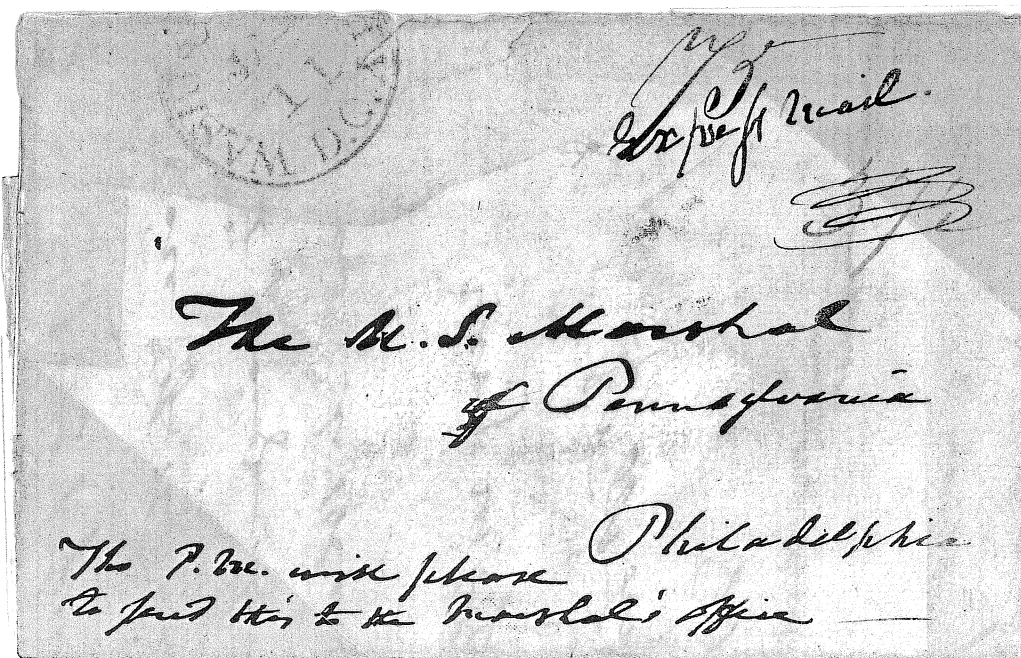 WASHINGTON D.C.
Express Mail.
The U. S. Marshal
of Pennsylvania
Philadelphia
The P. M. will please
to send this to the Marshal's office